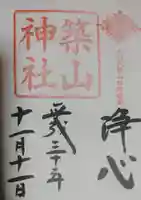 浄心
築山
神社
平成三十年
十一月十一日